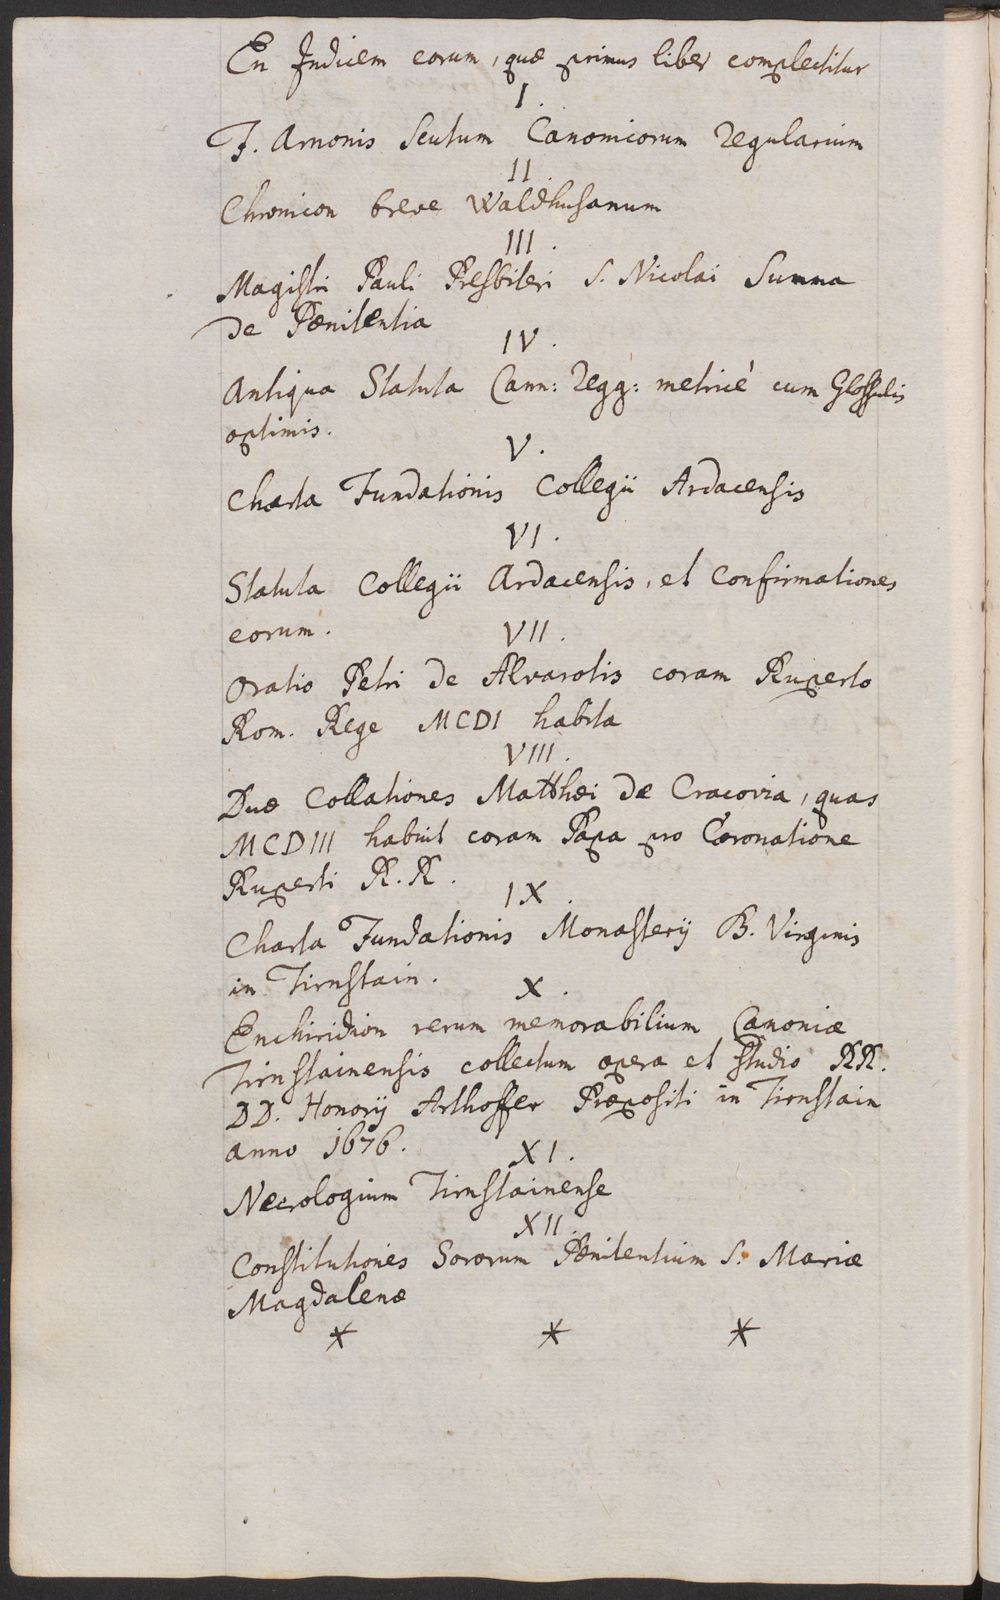 En Indicem eorum, quæ primus liber complectitur
I.
F. Arnonis Scutum Canonicorum Regularium
II.
Chronicon breve Waldhusanum
III.
Magistri Pauli Presbiteri S. Nicolai Summa
de Pænitentia
IV.
Antiqua Statuta Cann: Regg: metricè cum Glossulis
optimis.
V.
Charta Fundationis Collegii Ardacensis
VI.
Statuta Collegii Ardacensis, et Confirmationes
eorum.
VII.
Oratio Petri de Alvarotis coram Ruperto
Rom. Rege MCDI habita
VIII.
Duæ Collationes Matthæi de Cracovia, quas
MCDIII habuit coram Papa pro Coronatione
Ruperti R. R.
IX.
Charta Fundationis Monasterij B. Virginis
in Tirnstain.
X.
Enchiridion rerum memorabilium Canoniæ
Tirnstainensis collectum opera et studio RR.
DD. Honorij Arthoffer Præpositi in Tirnstain
anno 1676.
XI.
Necrologium Tirnstainense
XII.
Constitutiones Sororum Pænitentium S. Mariæ
Magdalenæ
* * *